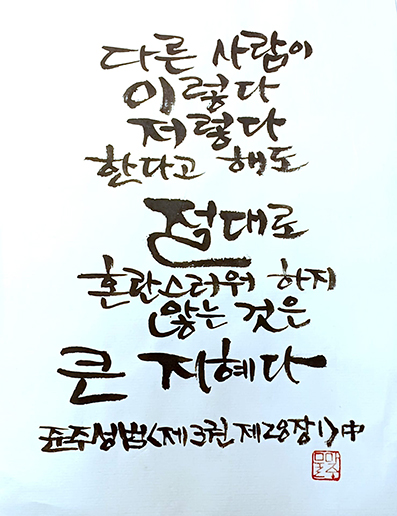 다른 사람이
이렇다
저렇다
한다고 해도
절대로
혼란스러워 하지
않는 것은
큰 지혜다
준주성범<제3권 제28장1>中